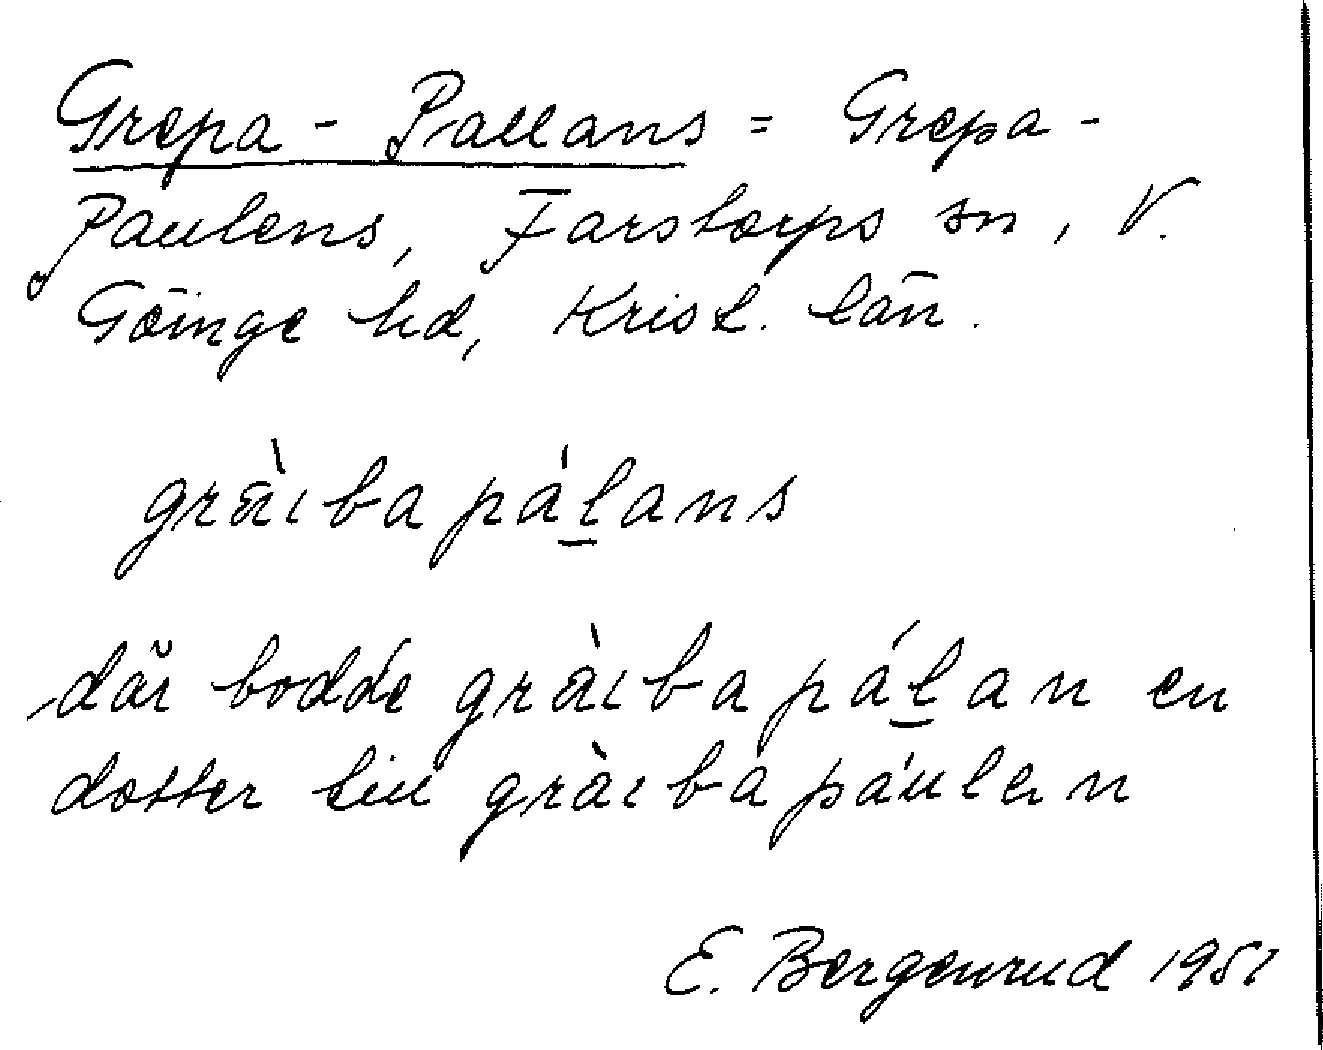 Grepa - Pallans = Grepa -
Paulens, Farstorps sn, V.
Göinge hd, Krist. län.
grä̀ıba pálans
där bodde grà̈ıba pálan en
dotter till gràıba páulen
E. Bergenrud 1951